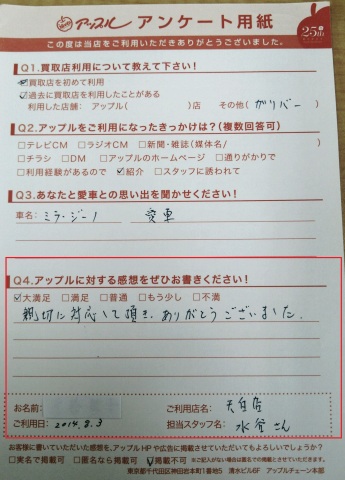 アップル アンケート用紙
25th
この度は当店をご利用いただきありがとうございました。
Q1.買取店利用について教えて下さい！
☑買取店を初めて利用
☑過去に買取店を利用したことがある
利用した店舗： アップル（ ）店 その他（ガリバー ）
Q2.アップルをご利用になったきっかけは？（複数回答可）
□テレビCM □ラジオCM □新聞・雑誌（媒体名/ ）
□チラシ □DM □アップルのホームページ □通りがかりで
□利用経験があるので ☑紹介 □スタッフに誘われて
Q3.あなたと愛車との思い出を聞かせください！
車名： ミラ・ジーノ 愛車
Q4.アップルに対する感想をぜひお書きください！
☑大満足 □満足 □普通 □もう少し □不満
親切に対応して頂き、ありがとうございました。
お名前： ご利用店名： 天白店
ご利用日： 2014.8.3 担当スタッフ名： 水谷さん
お客様に書いていただいた感想を、アップルHPや広告に掲載させていただいてもよろしいでしょうか？
□実名で掲載可 □匿名なら掲載可 ☑掲載不可 ※ご記入がない場合は匿名での掲載とさせていただきます。
東京都千代田区神田岩本町1番地5 清水ビル6F アップルチェーン本部